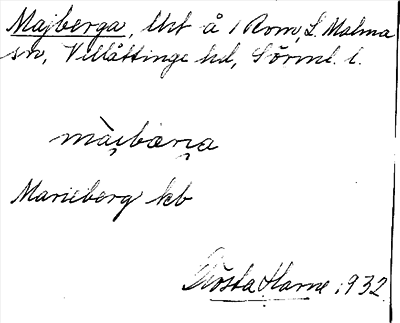 Majberga, lht å 1 Rom, L. Malma
sn, Villåttinge hd, Sörml. l.
màɪ̯bærɪ̯a
Marieberg kb
Gösta Harne 1932